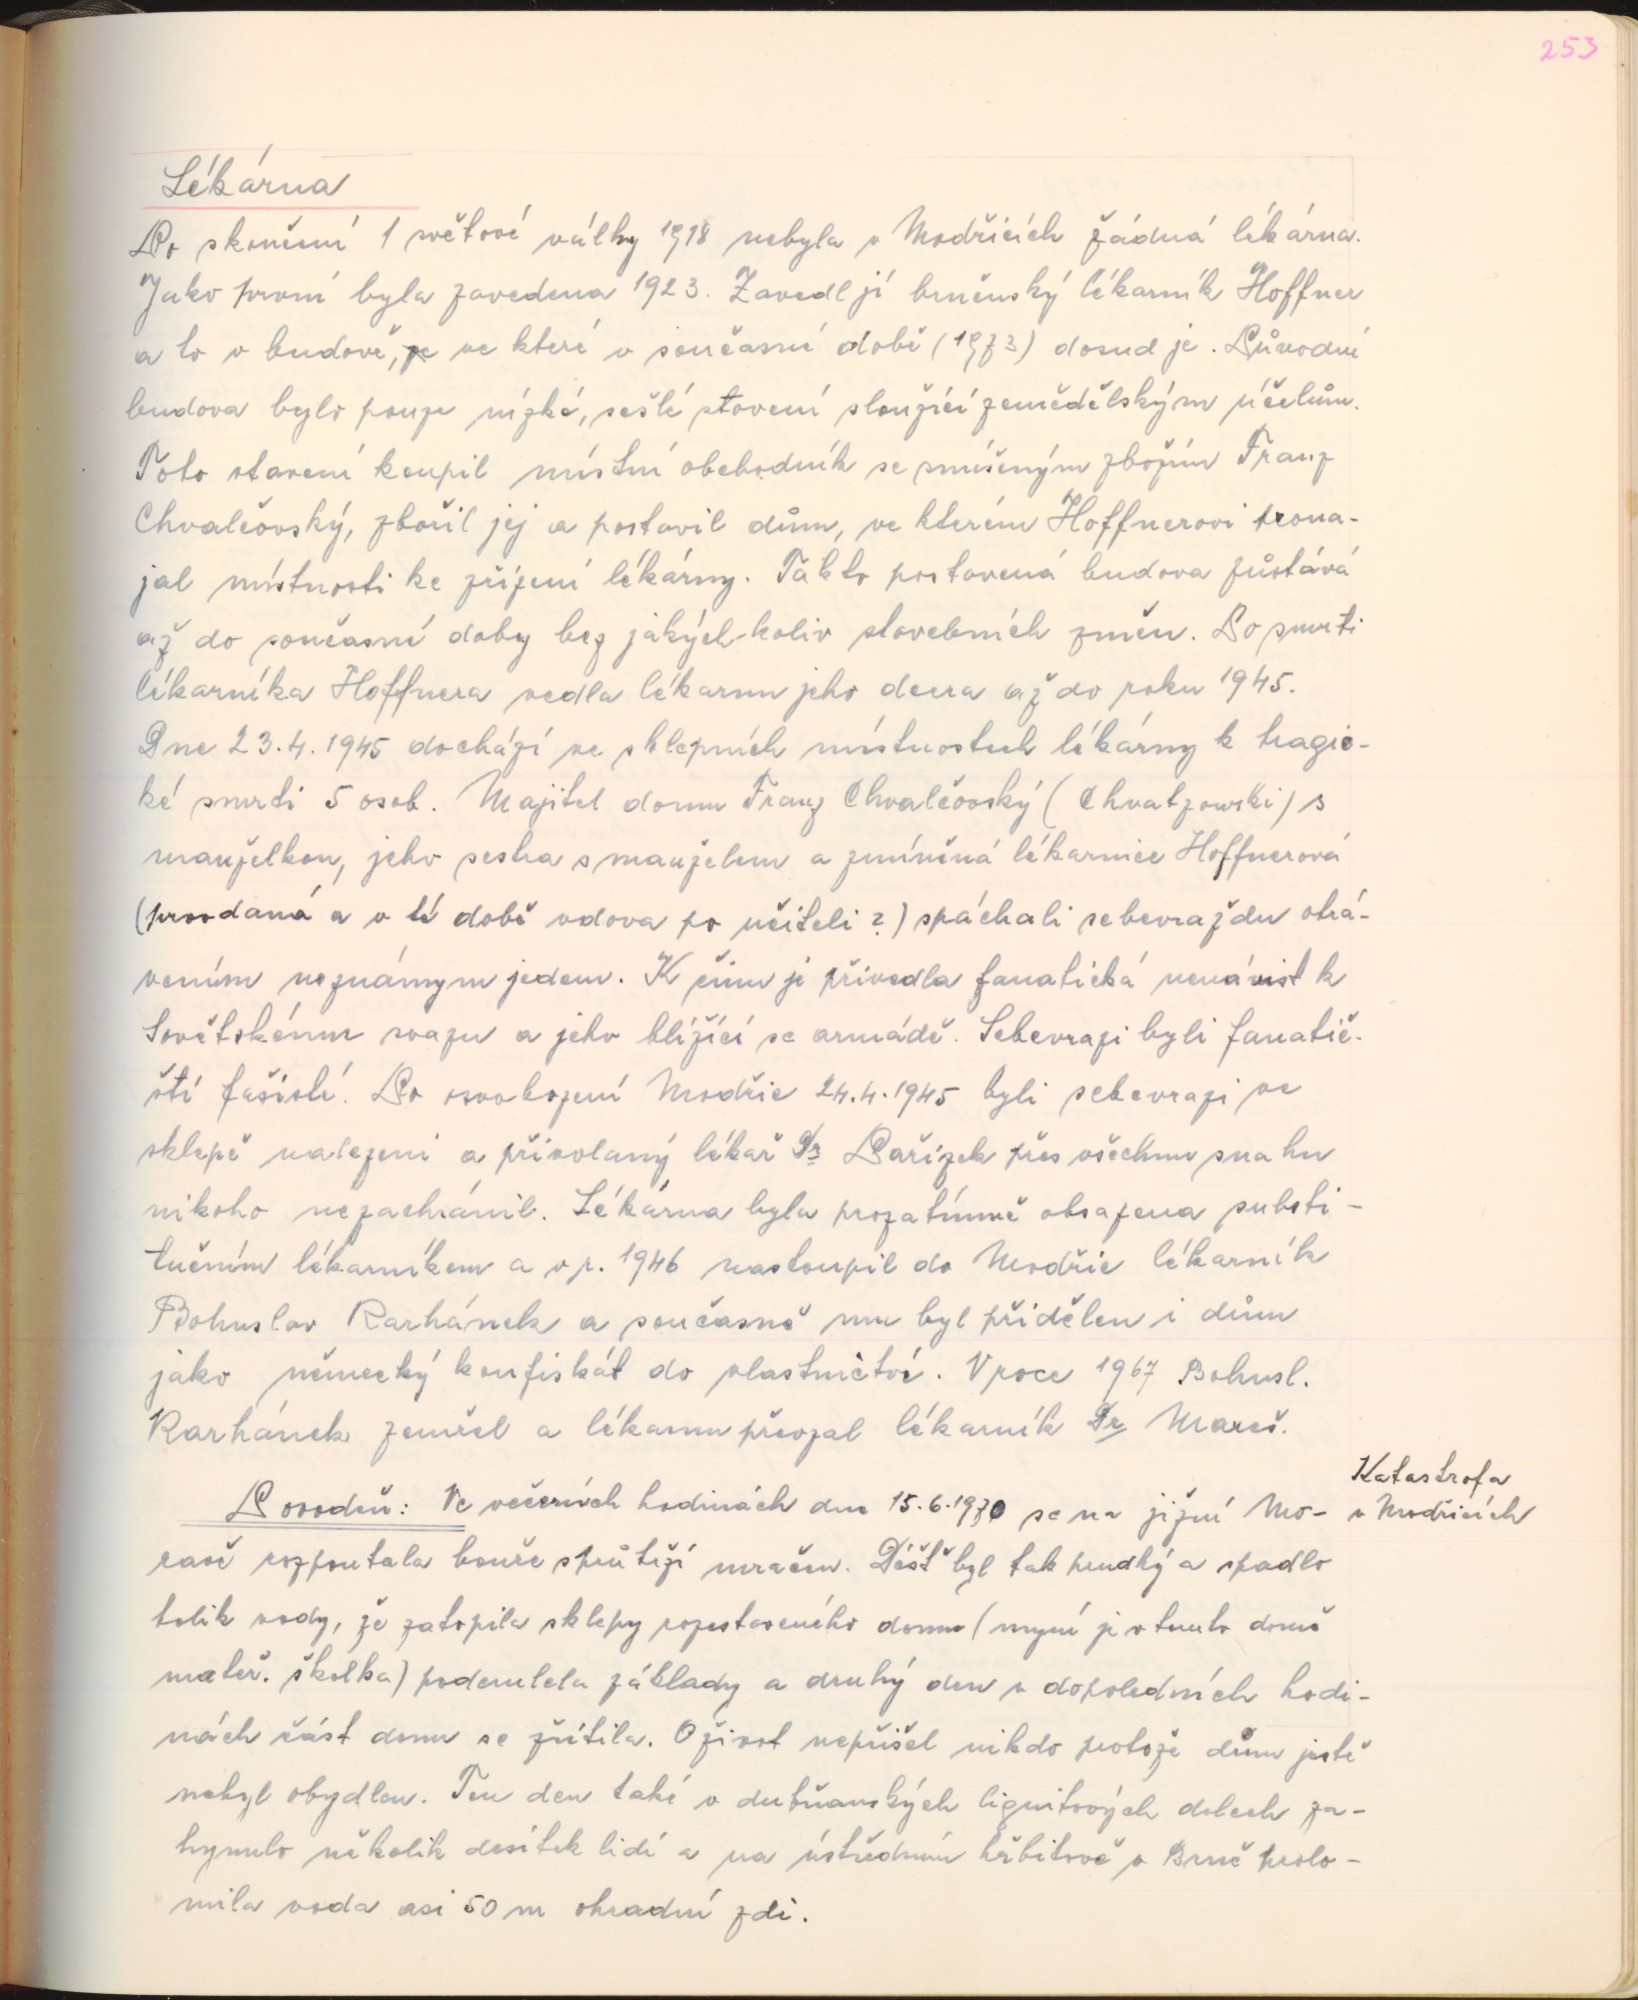 253
Lékárna
Po skončení 1 světové války 1918 nebyla v Modřicích žádná lékárna.
Jako první byla zavedena 1923. Zavedl jí brněnský lékarník Hoffner
a to v budově, ve které v současné době (1973) dosud je. Původní
budova bylo pouze nízké, sešlé stavení sloužící zemědělským účelům.
Toto stavení koupil místní obchodník se smíšeným zbožím Franz
Chvalčovský, zbořil jej a postavil dům, ve kterém Hoffnerovi prona-
jal místnosti ke zřízení lékárny. Takto postavená budova zůstává
až do současné doby bez jakých-koliv stavebních změn. Po smrti
lékarníka Hoffnera vedla lékarnu jeho dcera až do roku 1945.
Dne 23.4.1945 dochází ve sklepních místnostech lékárny k tragic-
ké smrti 5 osob. Majitel domu Franz Chvalčovský (Chvatzowski) s
manželkou, jeho sestra s manželem a zmíněná lékarnice Hoffnerová
(provdaná a v té době vdova po učiteli ?) spáchali sebevraždu otrá-
vením neznámym jedem. K činu je přivedla fanatická nenávist k
Sovětskému svazu a jeho blížící se armádě. Sebevrazi byli fanatič-
ští fašisté. Po osvobození Modřic 24.4.1945 byli sebevrazi ve
sklepě nalezeni a přivolaný lékař Dr Pařízek přes všechnu snahu
nikoho nezachránil. Lékárna byla prozatímně obsazena substi-
tučním lékarníkem a v r. 1946 nastoupil do Modřic lékarník
Bohuslav Karhánek a současně mu byl přidělen i dům
jako německý konfiskát do vlastnictví. V roce 1967 Bohusl.
Karhánek zemřel a lékarnu převzal lékarník Dr Mareš.
Katastrofa
v Modřicích
Povodeň: Ve večerních hodinách dne 15.6.1970 se na jižní Mo-
ravě rozpoutala bouře s průtrží mračen. Déšť byl tak prudký a spadlo
tolik vody, že zatopila sklepy rozestavěného domu (nyní je v tomto domě
mateř. školka) podemlela základy a druhý den v dopoledních hodi-
nách část domu se zřítila. O život nepřišel nikdo protože dům ještě
nebyl obydlen. Ten den také v dubňanských lignitových dolech za-
hynulo několik desítek lidí a na ústředním hřbitově v Brně prolo-
mila voda asi 50 m ohradní zdi.